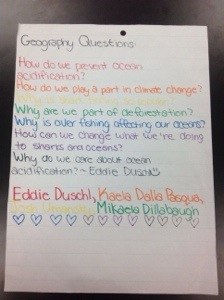 Geography Questions:
How do we prevent ocean
acidification?
How do we play a part in climate change?
Why are we part of deforestation?
Why is over fishing affecting our oceans?
How can we change what we're doing
to sharks and oceans?
Why do we care about ocean
acidification? - Eddie Duschl
Eddie Duschl, Kaela Dalla Pasqua,
Mikaela Dillabaugh